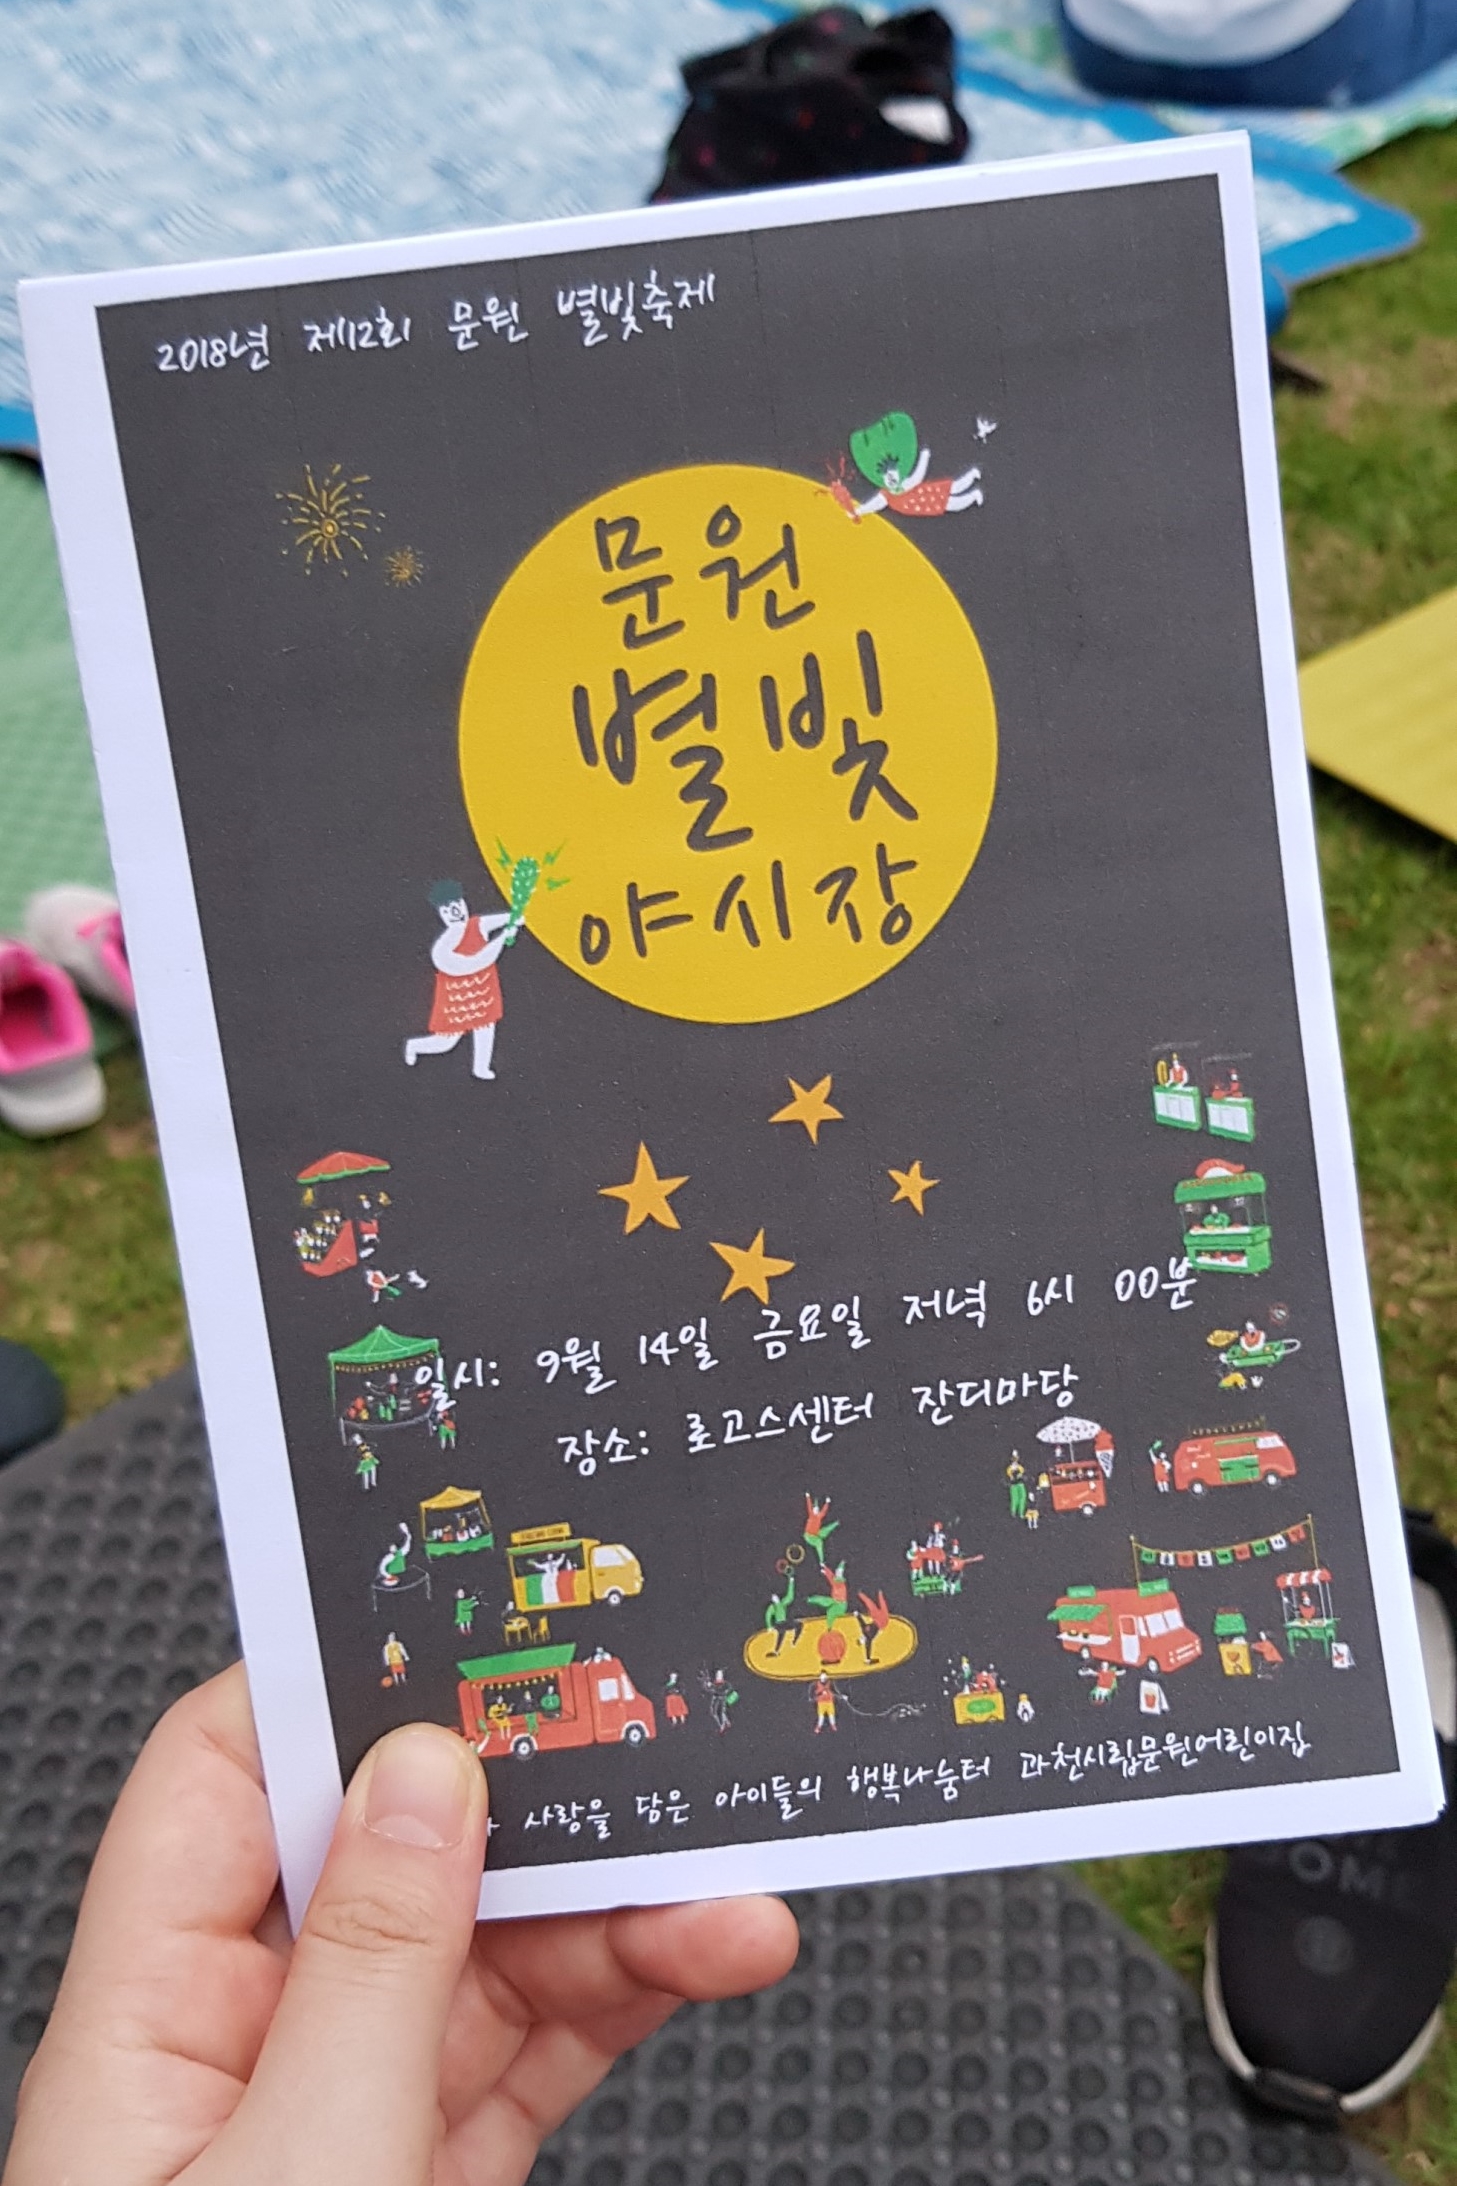 2018년 제12회 문원 별빛축제
문원
별빛
야시장
일시: 9월 14일 금요일 저녁 6시 00분
장소: 로고스센터 잔디마당
사랑을 담은 아이들의 행복나눔터 과천시립문원어린이집